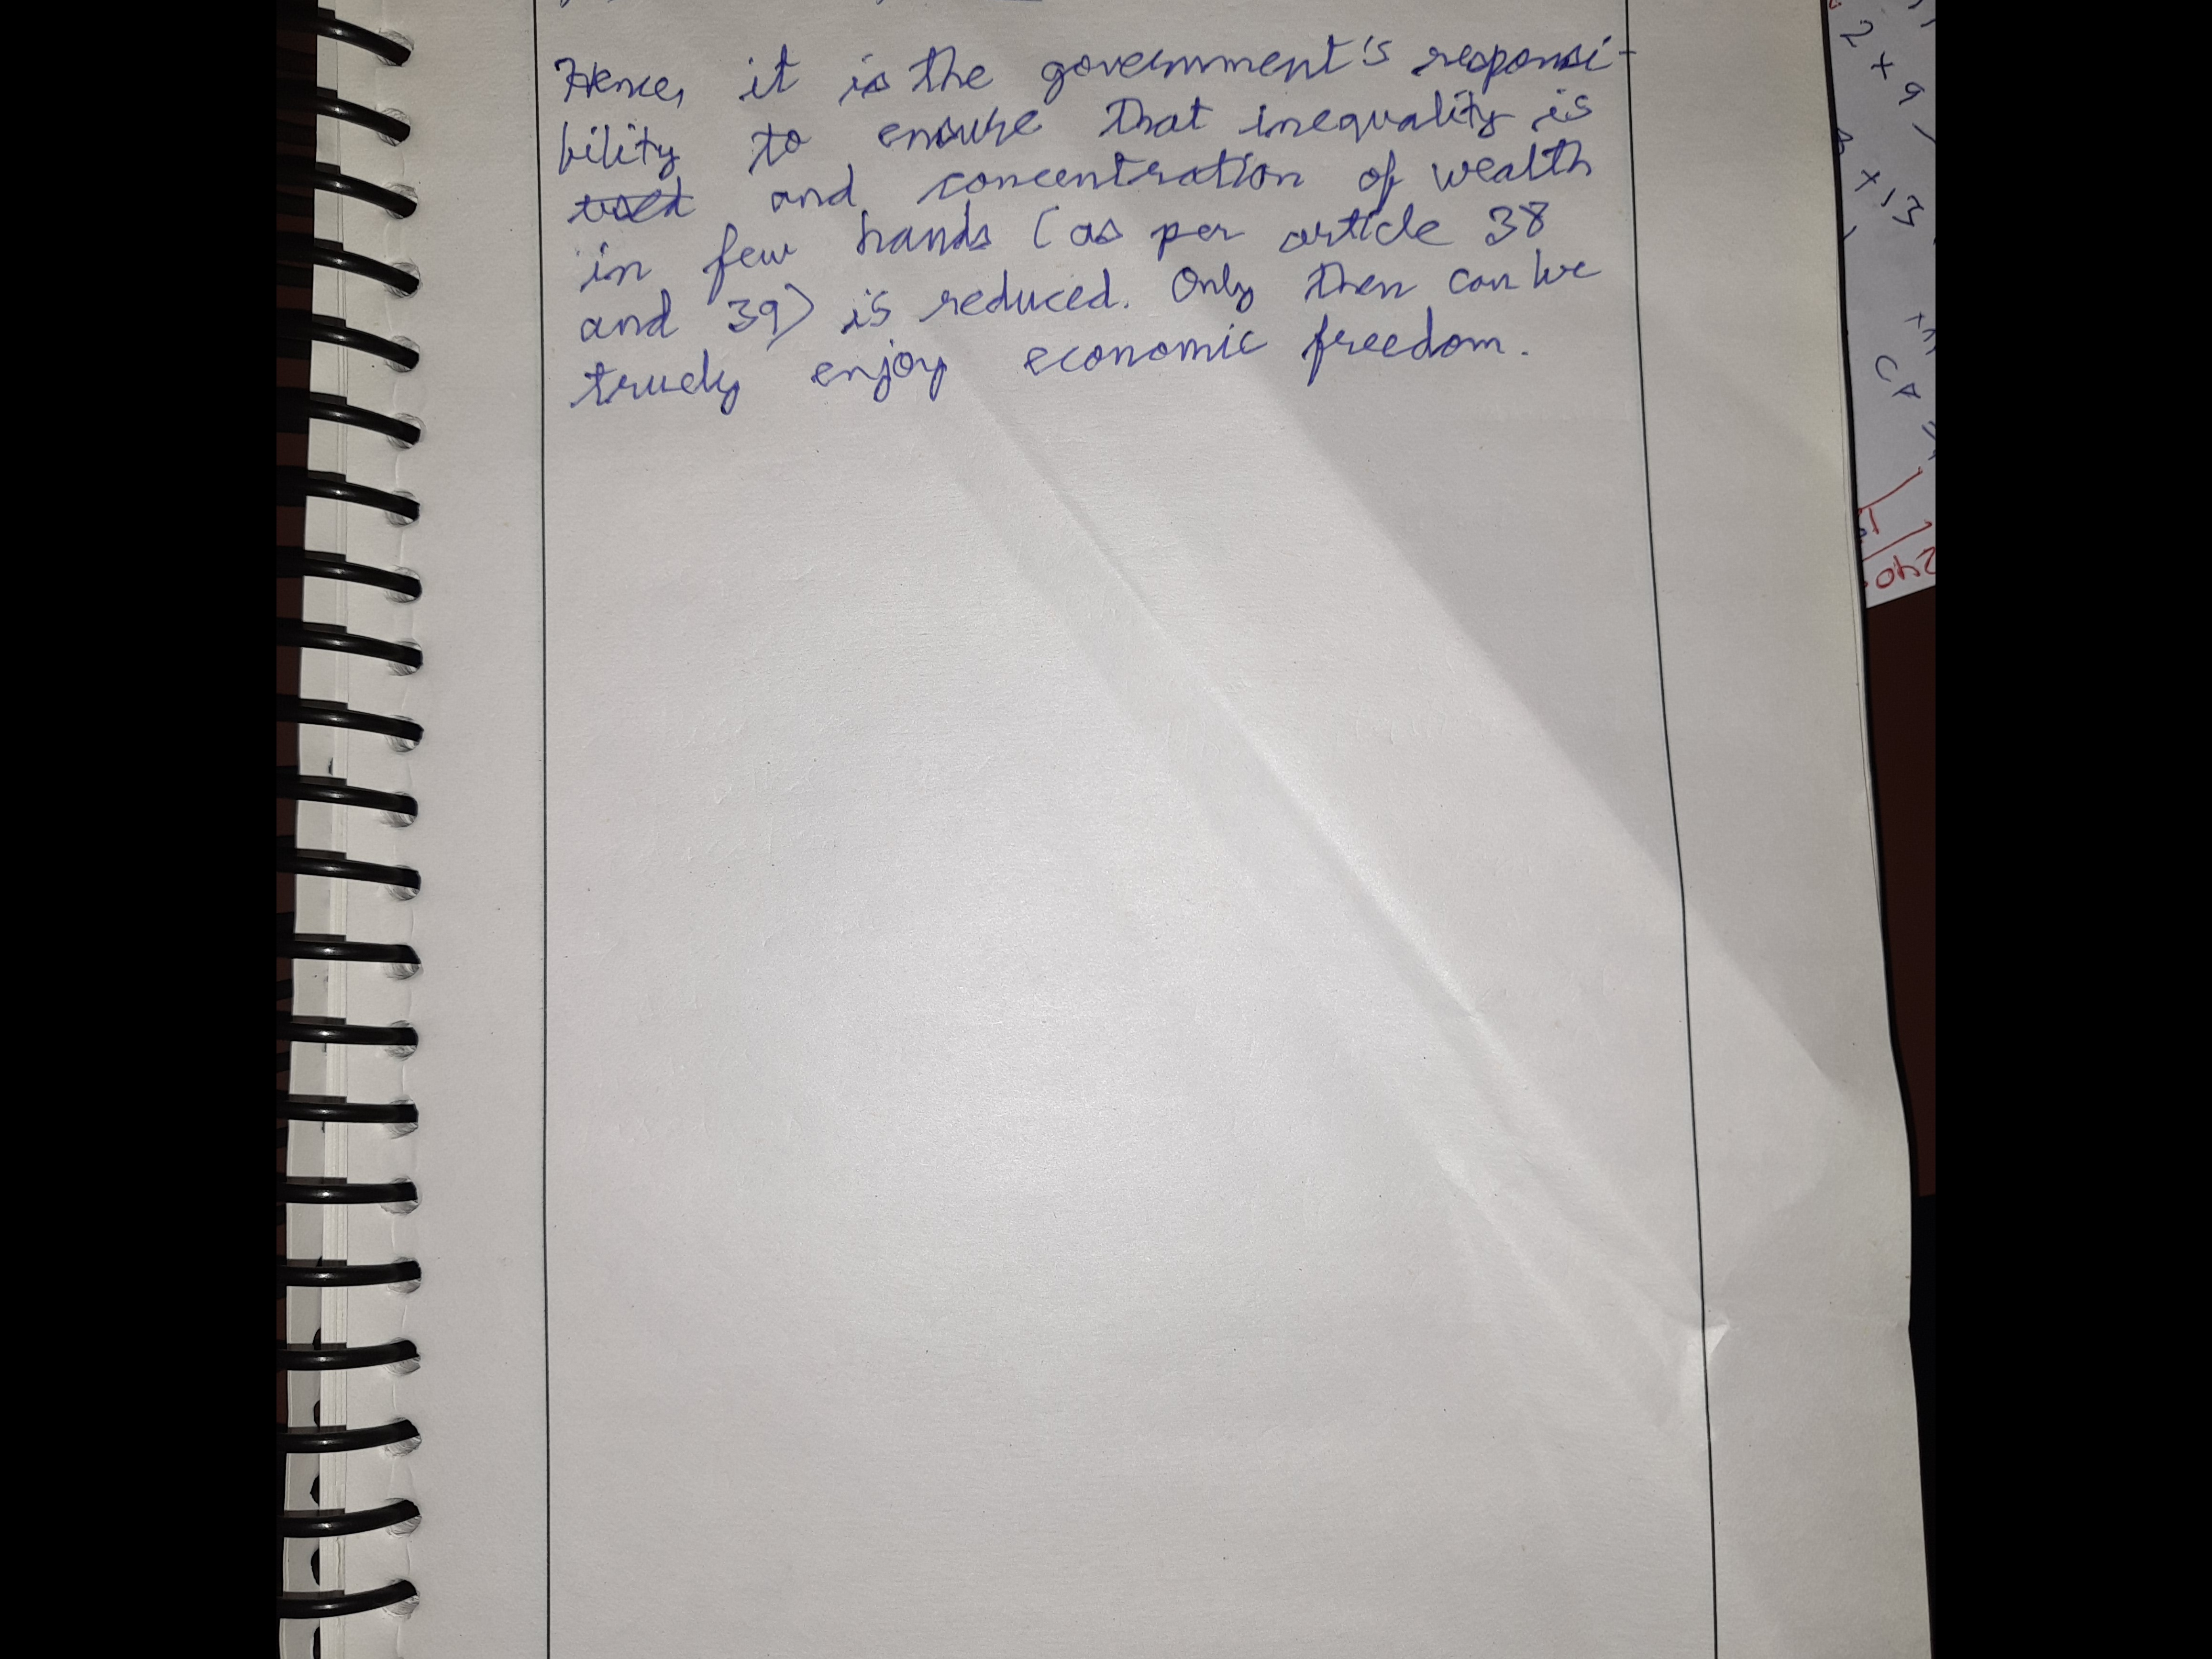 Hence, it is the government's responsi-
bility to ensure that inequality is
and concentration of wealth
in few hands (as per article 38
and 39) is reduced. Only then can we
truely enjoy economic freedom.
2 + 9
+ 13
CA
240